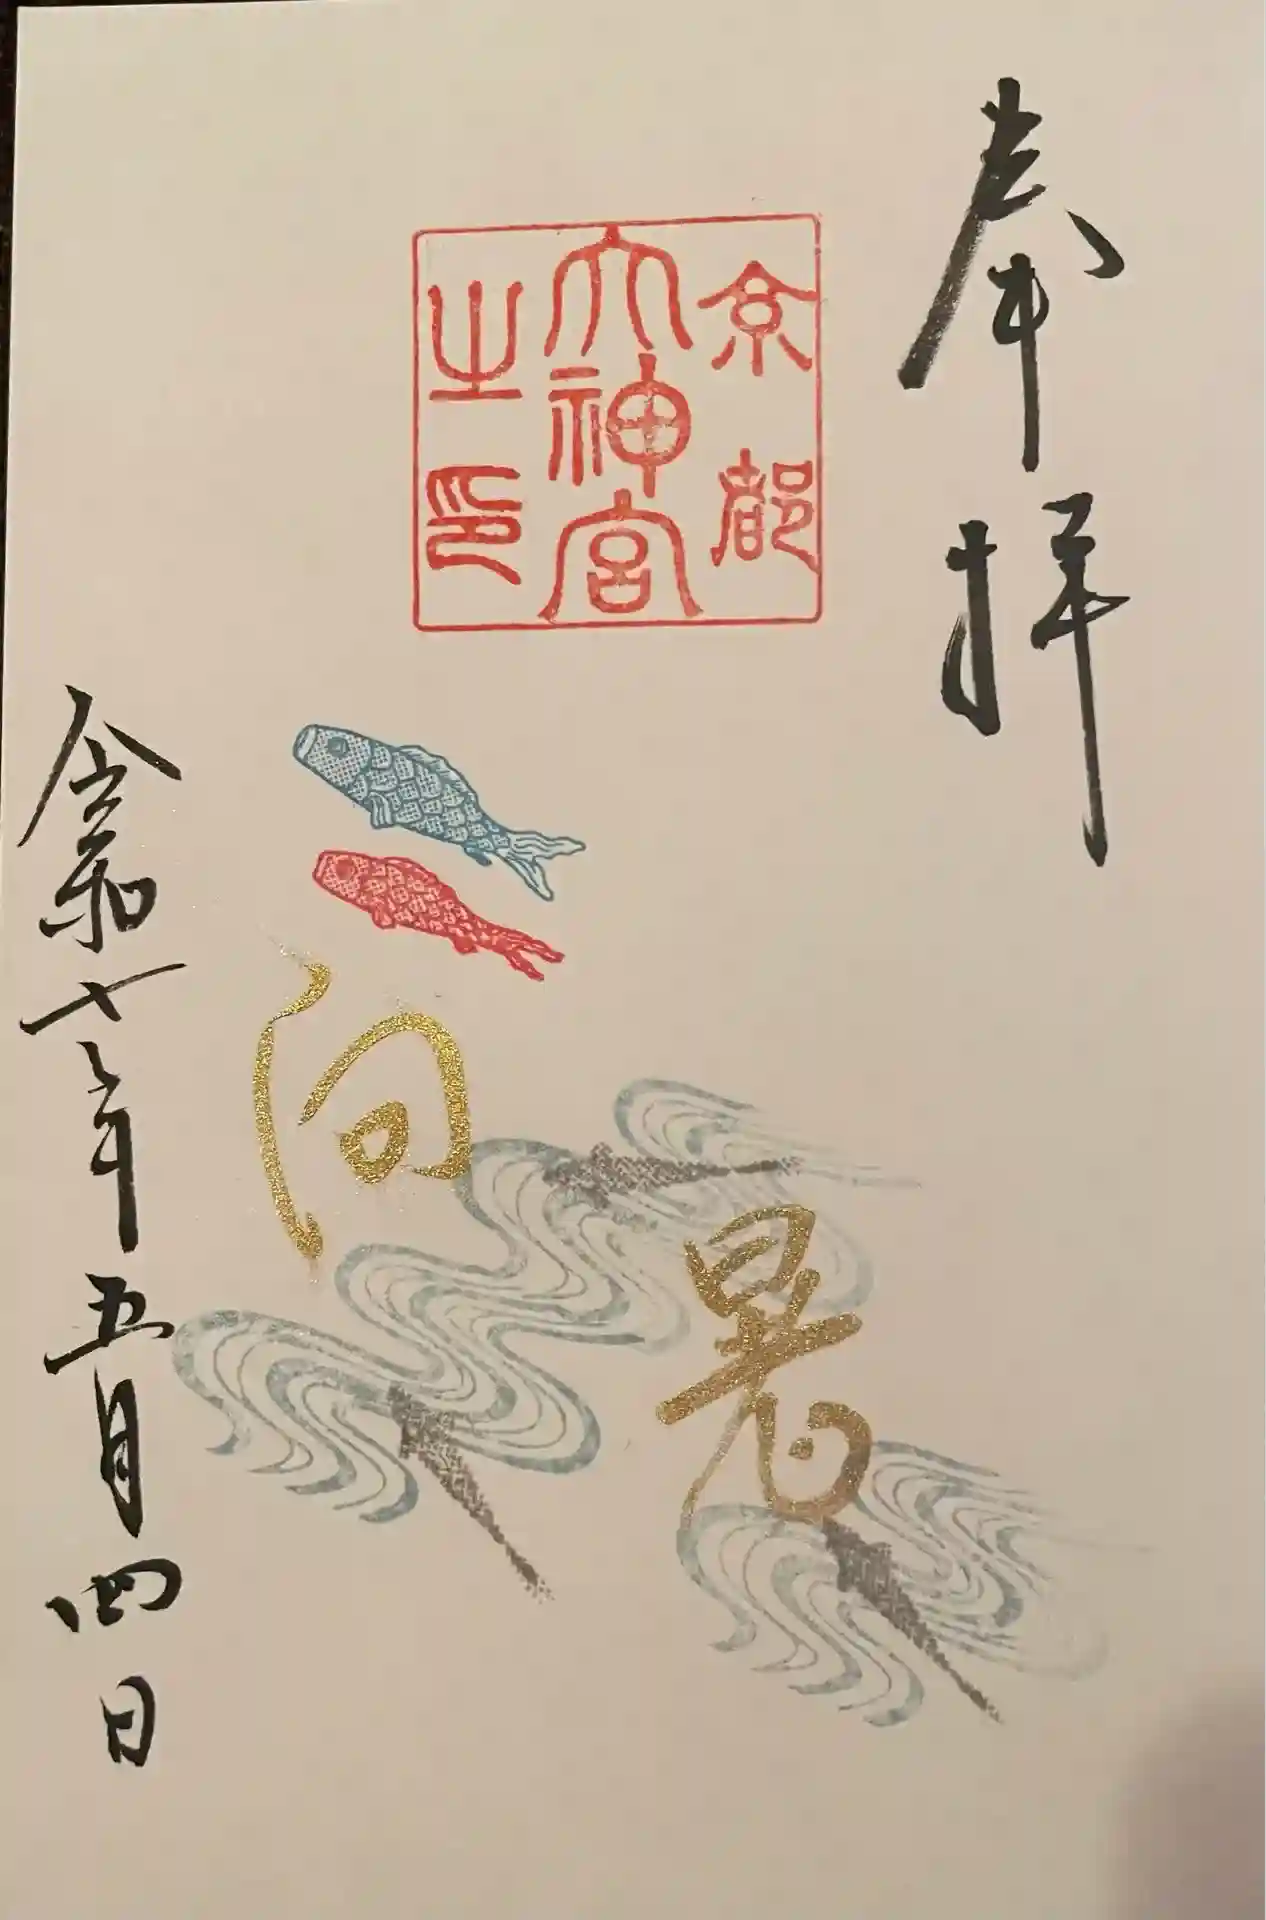 奉拝
京都
大神宮
之印
晃
向
令和七年五月四日